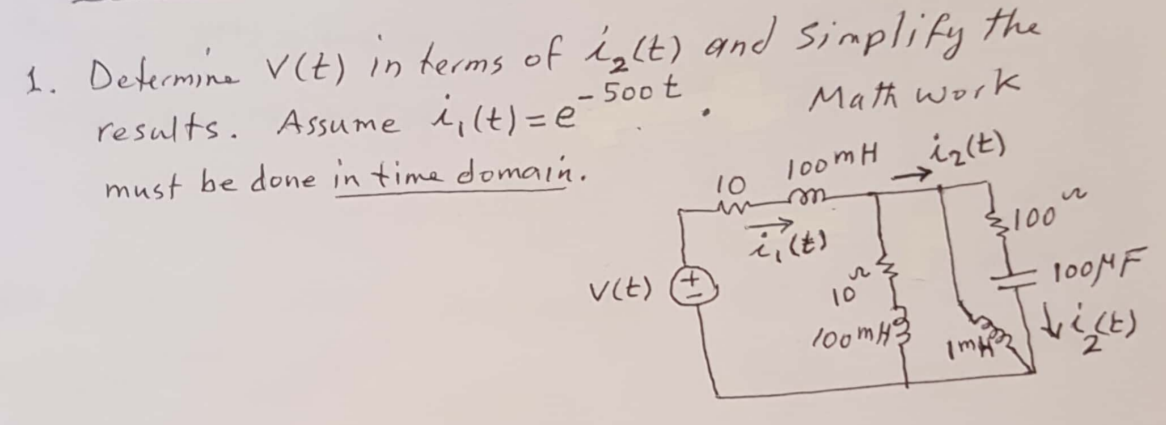 1. Determine V(t) in terms of i₂(t) and simplify the
results. Assume i₁(t) = e^-500t. Math work
must be done in time domain.
10 100mH i₂(t)
i₁(t)
100Ω
V(t) + -
10Ω
100μF
100mH
1mH
i₂(t)